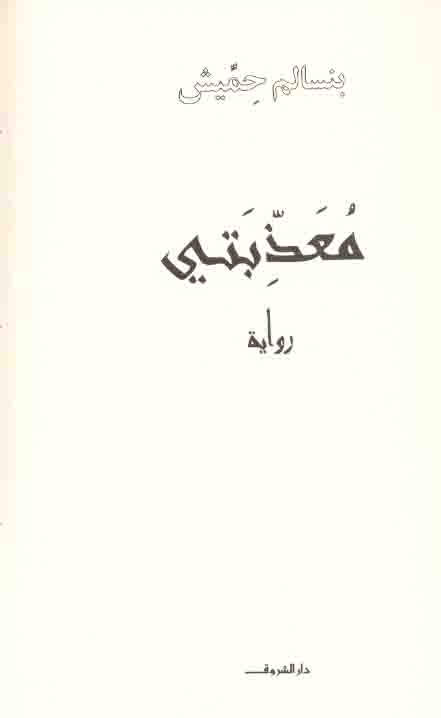 بنسالم حِمِّيش
مُعَذِّبَتي
رواية
دار الشروق